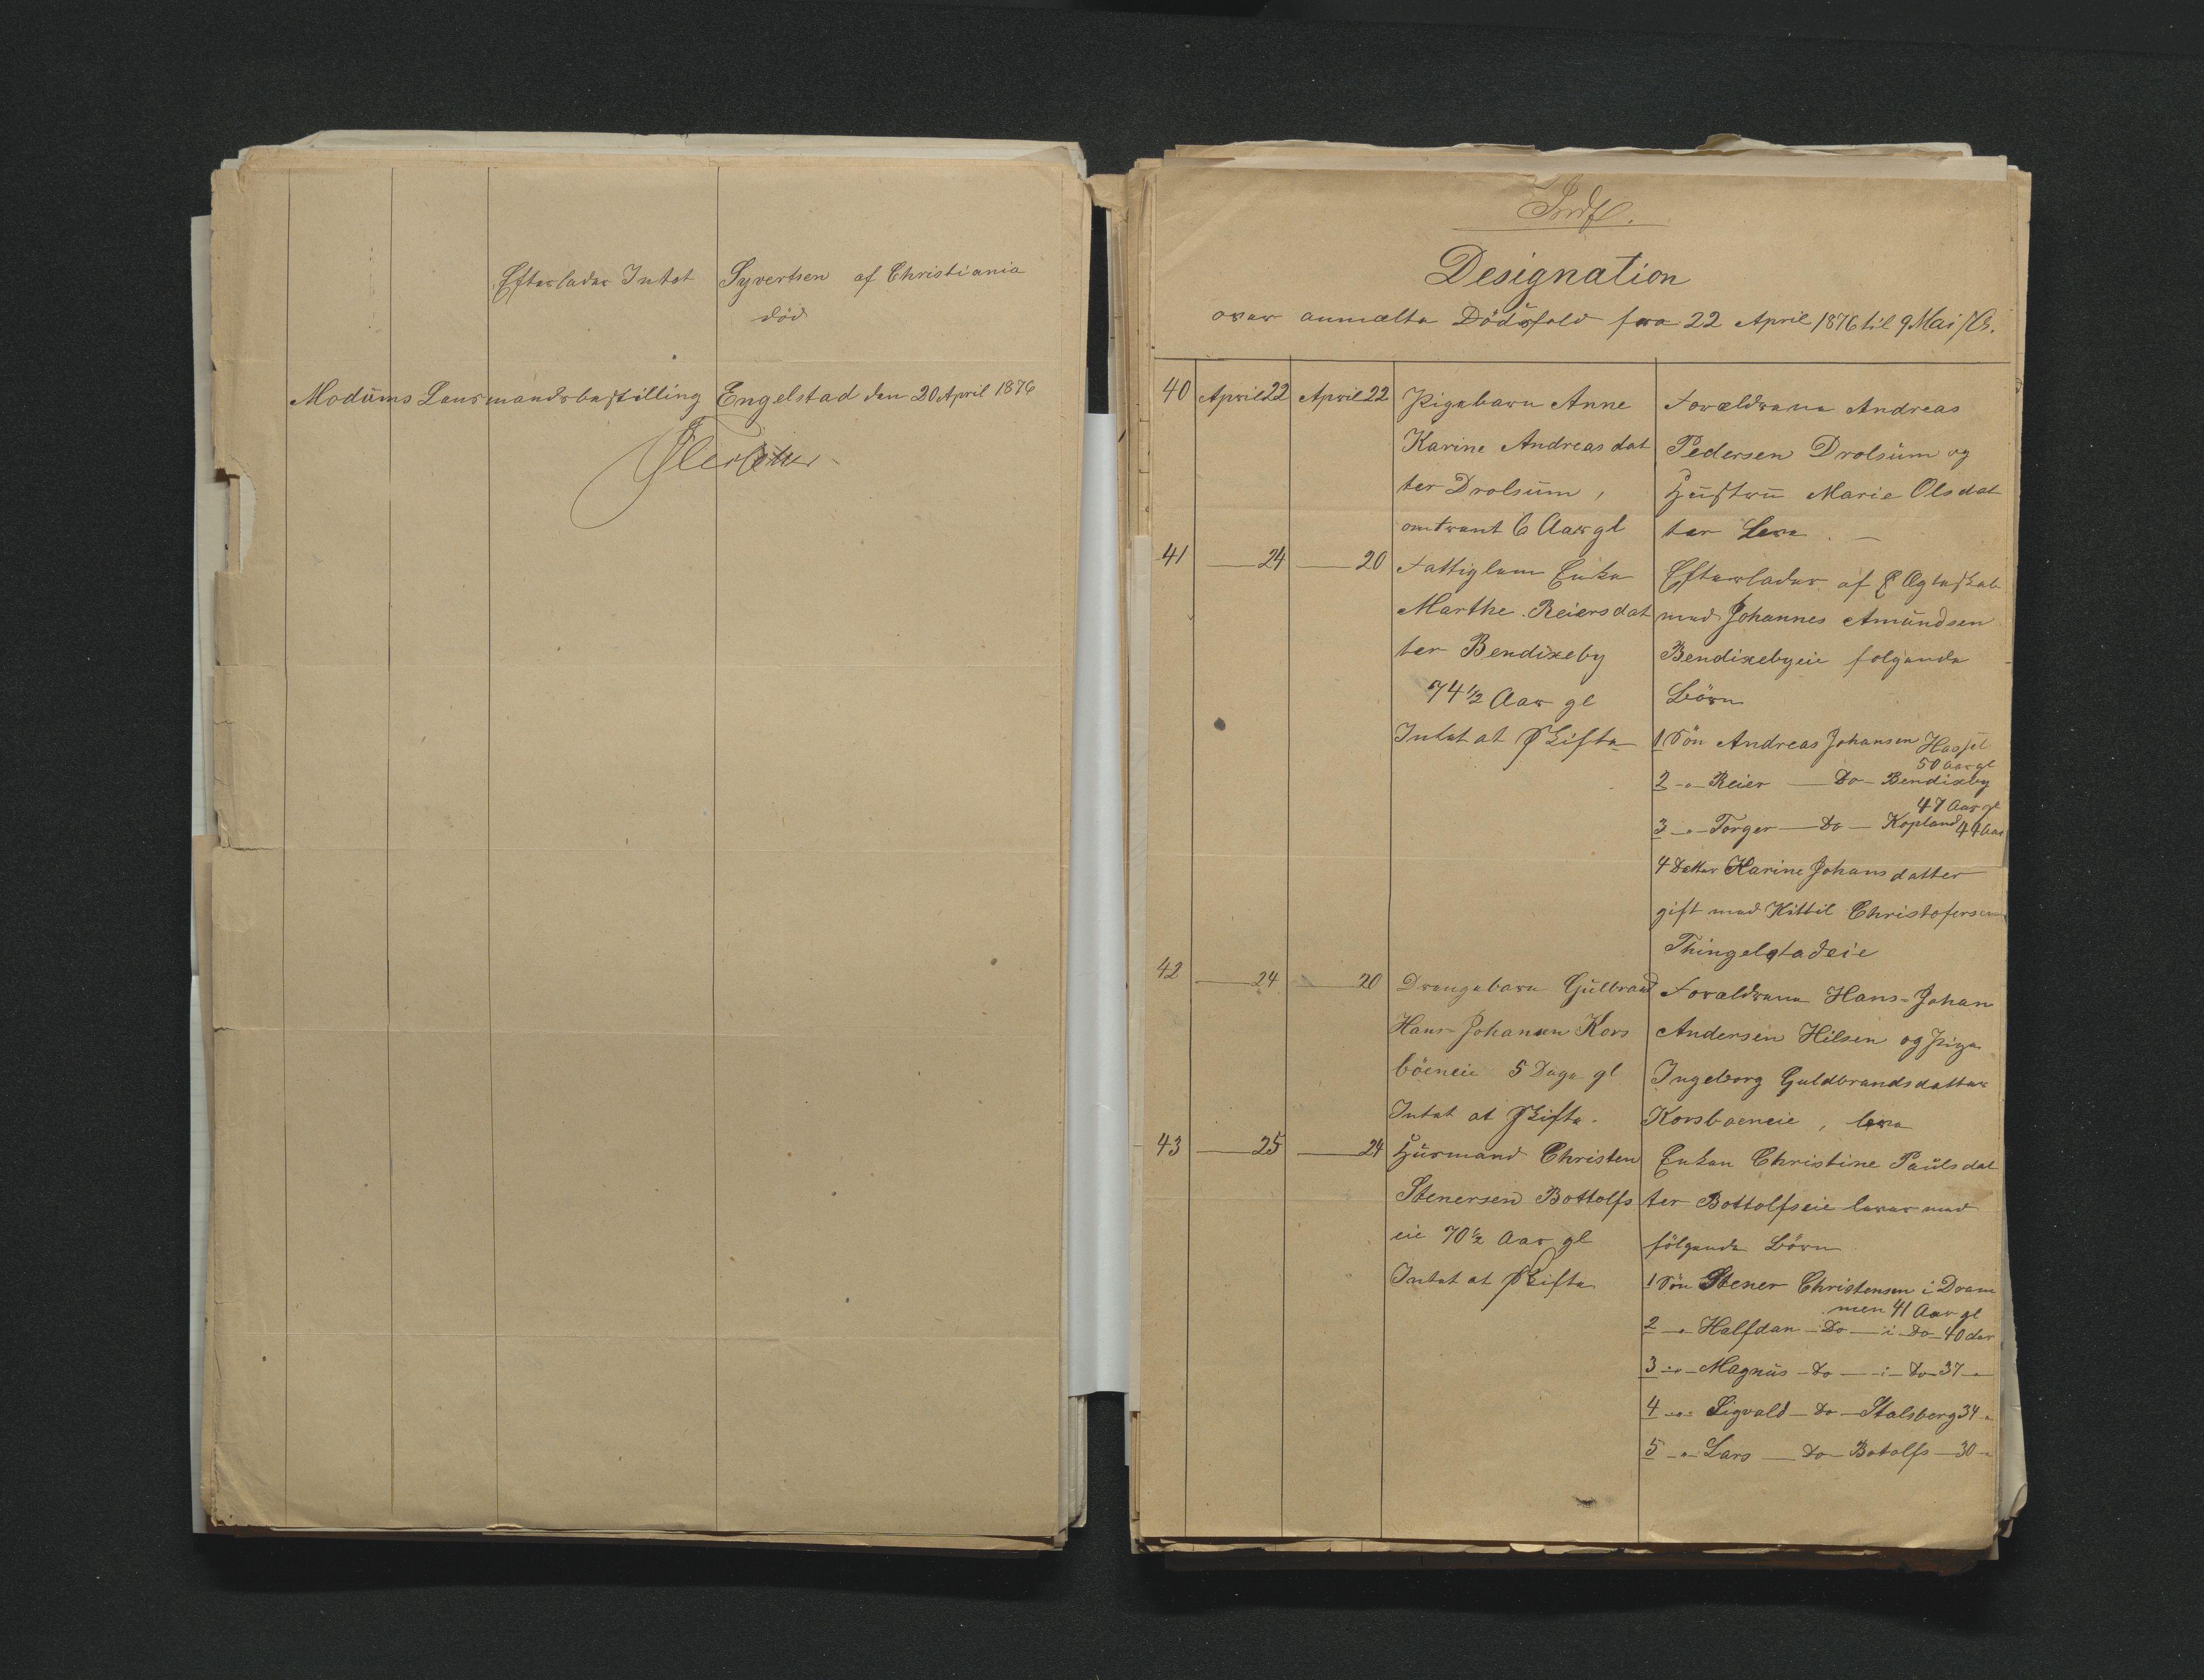 Efterlader Intet
Syvertsen af Christiania
død
Modums Lensmandsbestilling Engelstad den 20 April 1876
Indf.
Designation
over anmeldte Dödsfald fra 22 April 1876 til 9 Mai
40 April 22 April 22 Pigebarn Anne
Karine Andreasdat
ter Drolsum,
omtrent 6 Aar gl
Forældrene Andreas
Pedersen Drolsum og
Hustru Marie Olsdat
ter Leve.
41 — 24 — 20 Fattiglem Enke
Marthe Reiersdat
ter Bendixeby
74 1/2 Aar gl
Intet at Skifte
Efterlader af Egteskab
med Johannes Amundsen
Bendixebyeie folgende
Börn
1 Sön Andreas Johansen Hassel
50 Aar gl
2 -"- Reier — Do - Bendixeby
47 Aar gl
3 -"- Torger — Do — Kopland 44 Aar
4 Datter Karine Johansdatter
gift med Kittil Christofersen
Thingelstadeie
42 — 24 — 20 Drengebarn Gulbrand
Hans-Johansen Kors
böeneie 5 Dage gl
Intet at Skifte.
Forældrene Hans-Johan
Andersen Hilsen og Pige
Ingeborg Guldbrandsdatter
Korsboeneie, leve
43 — 25 — 24 Husmand Christen
Stenersen Bottolfs
eie 70 1/2 Aar gl
Intet at Skifte
Enken Christine Paulsdat
ter Bottolfseie lever med
fölgende Börn
1 Sön Stener Christensen i Dram
men 41 Aar gl
2 -"- Halfdan - Do — i - Do - 40 Aar
3 -"- Magnus - Do — i - Do 37 -"-
4 -"- Sigvald - Do - Stalsberg 34 -"-
5 -"- Lars — Do - Botolfs - 30 -"-